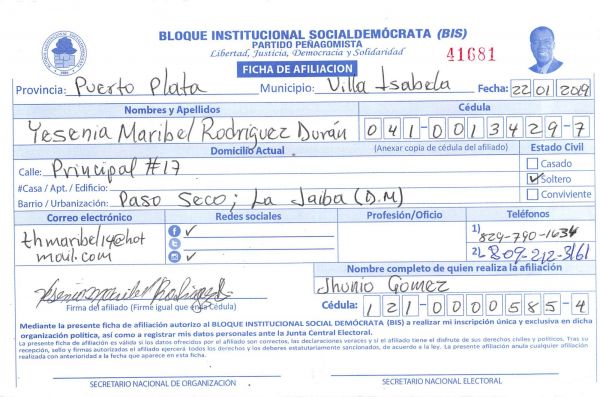 BLOQUE INSTITUCIONAL SOCIALDEMÓCRATA (BIS)
PARTIDO PEÑAGOMISTA
Libertad, Justicia, Democracia y Solidaridad
41681
FICHA DE AFILIACION
Provincia: Puerto Plata Municipio: Villa Isabela Fecha: 22 01 2019
Nombres y Apellidos Cédula
Yesenia Maribel Rodriguez Durán 041-0013429-7
Domicilio Actual (Anexar copia de cédula del afiliado) Estado Civil
Calle: Principal #17 Casado
#Casa / Apt. / Edificio: Soltero
Barrio / Urbanización: Paso Seco; La Jaiba (D.M) Conviviente
Correo electrónico Redes sociales Profesión/Oficio Teléfonos
thmaribel14@hot 1) 829-790-1634
mail.com 2) 809-212-3161
Nombre completo de quien realiza la afiliación
Jhunio Gomez
Yesenia Maribel Rodriguez
Firma del afiliado (Firme igual que en la Cédula) Cédula: 121-0000585-4
Mediante la presente ficha de afiliación autorizo al BLOQUE INSTITUCIONAL SOCIAL DEMÓCRATA (BIS) a realizar mi inscripción única y exclusiva en dicha
organización política, así como a registrar mis datos personales ante la Junta Central Electoral.
La presente ficha de afiliación es válida si los datos ofrecidos por el afiliado son correctos, las declaraciones veraces y si el titular disfruta de sus derechos civiles y políticos. Tras su
recepción, sello y firmas autorizadas el afiliado ejercerá todos los derechos y los deberes estatutariamente sancionados, de acuerdo a la ley. La presente afiliación anula cualquier afiliación
realizada con anterioridad a la fecha que aparece en esta ficha.
SECRETARIO NACIONAL DE ORGANIZACIÓN SECRETARIO NACIONAL ELECTORAL